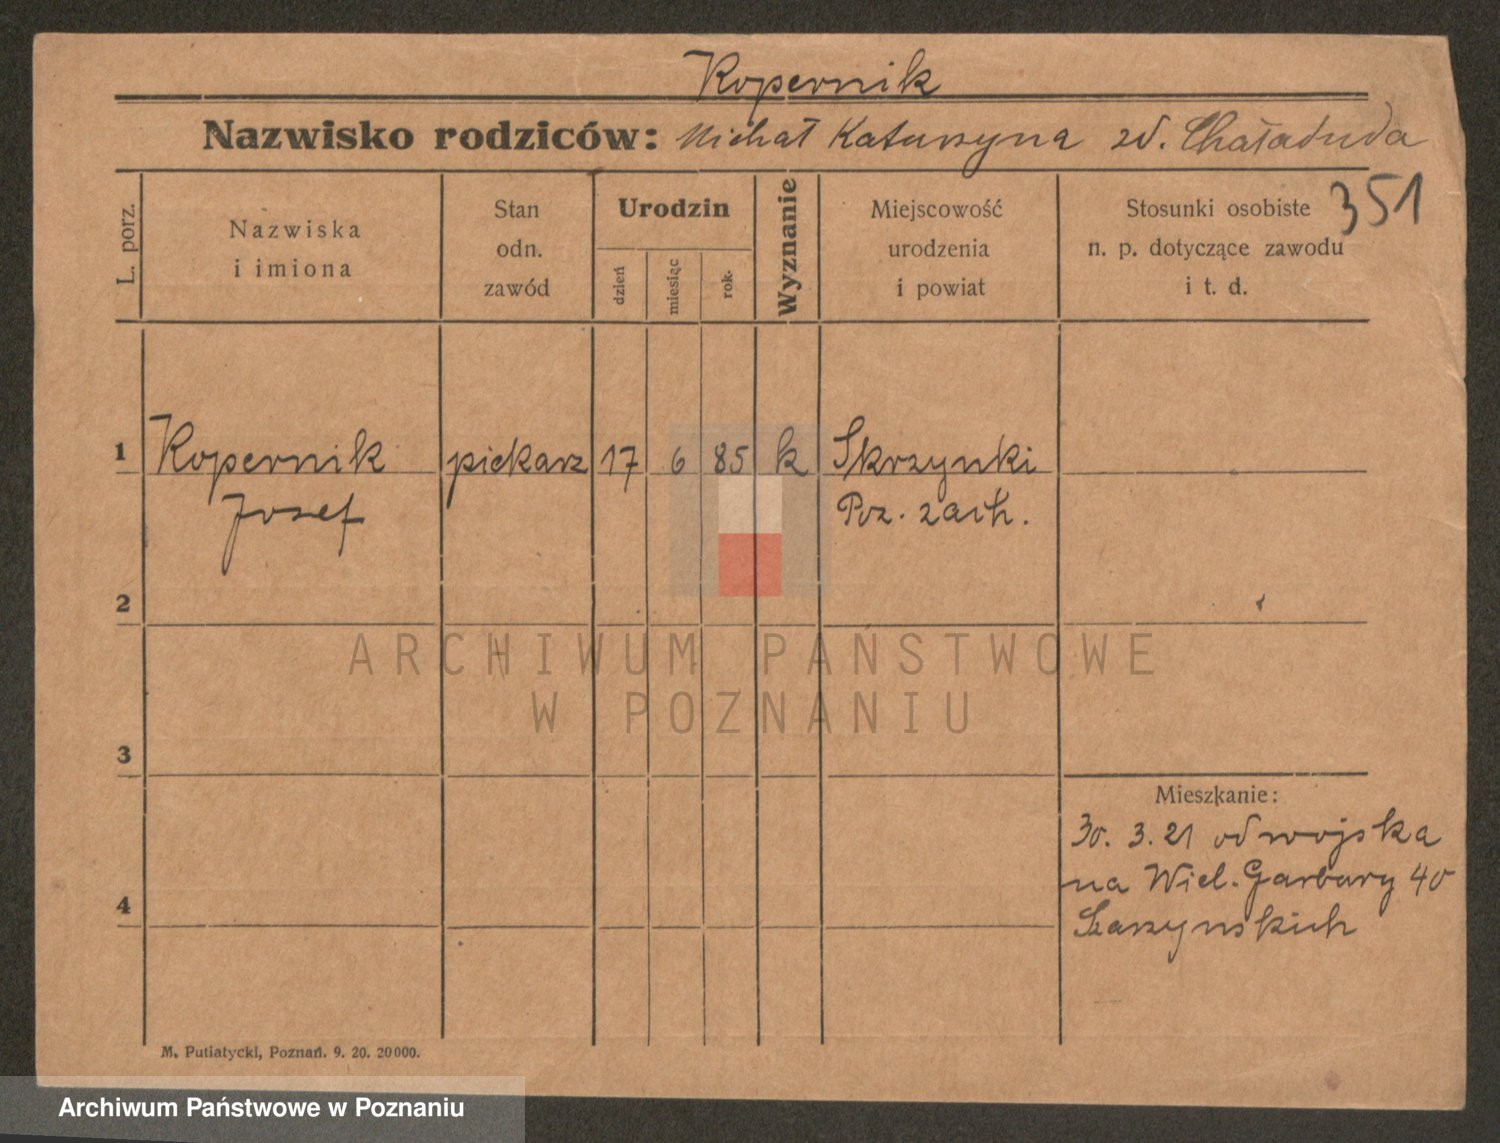 Kopernik
Nazwisko rodziców: Michał Katarzyna zd. Chaładuda
351
L. porz.
Nazwiska
i imiona
Stan
odn.
zawód
Urodzin
dzień
miesiąc
rok
Wyznanie
Miejscowość
urodzenia
i powiat
Stosunki osobiste
n. p. dotyczące zawodu
i t. d.
1 Kopernik piekarz 17 6 85 k Skrzynki
Josef Poz. zach.
2
ARCHIWUM PAŃSTWOWE
W POZNANIU
3
Mieszkanie:
30. 3. 21 od wojska
na Wiel. Garbary 40
4
M. Putiatycki, Poznań. 9. 20. 20000.
Archiwum Państwowe w Poznaniu